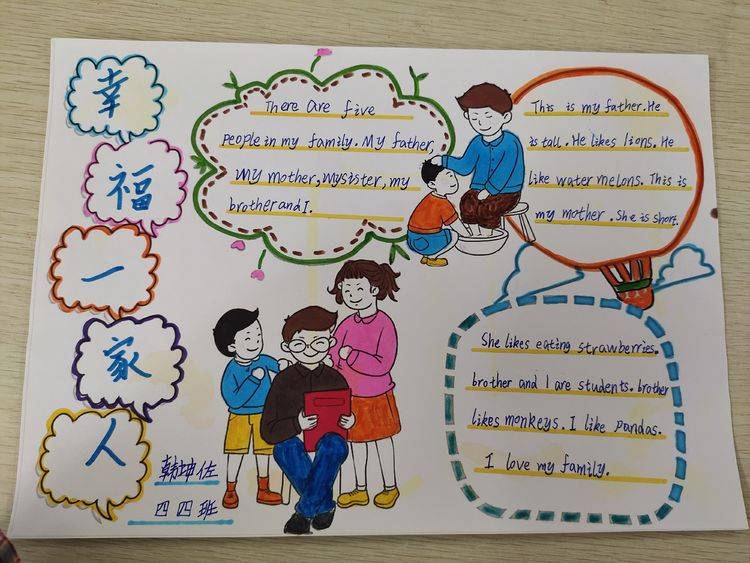 幸
福
一
家
人
There are five
people in my family. My father,
my mother, my sister, my
brother and I.
This is my father. He
is tall. He likes lions. He
like water melons. This is
my mother. She is short.
She likes eating strawberries.
brother and I are students. brother
likes monkeys. I like pandas.
I love my family.
韩坤佐
四四班